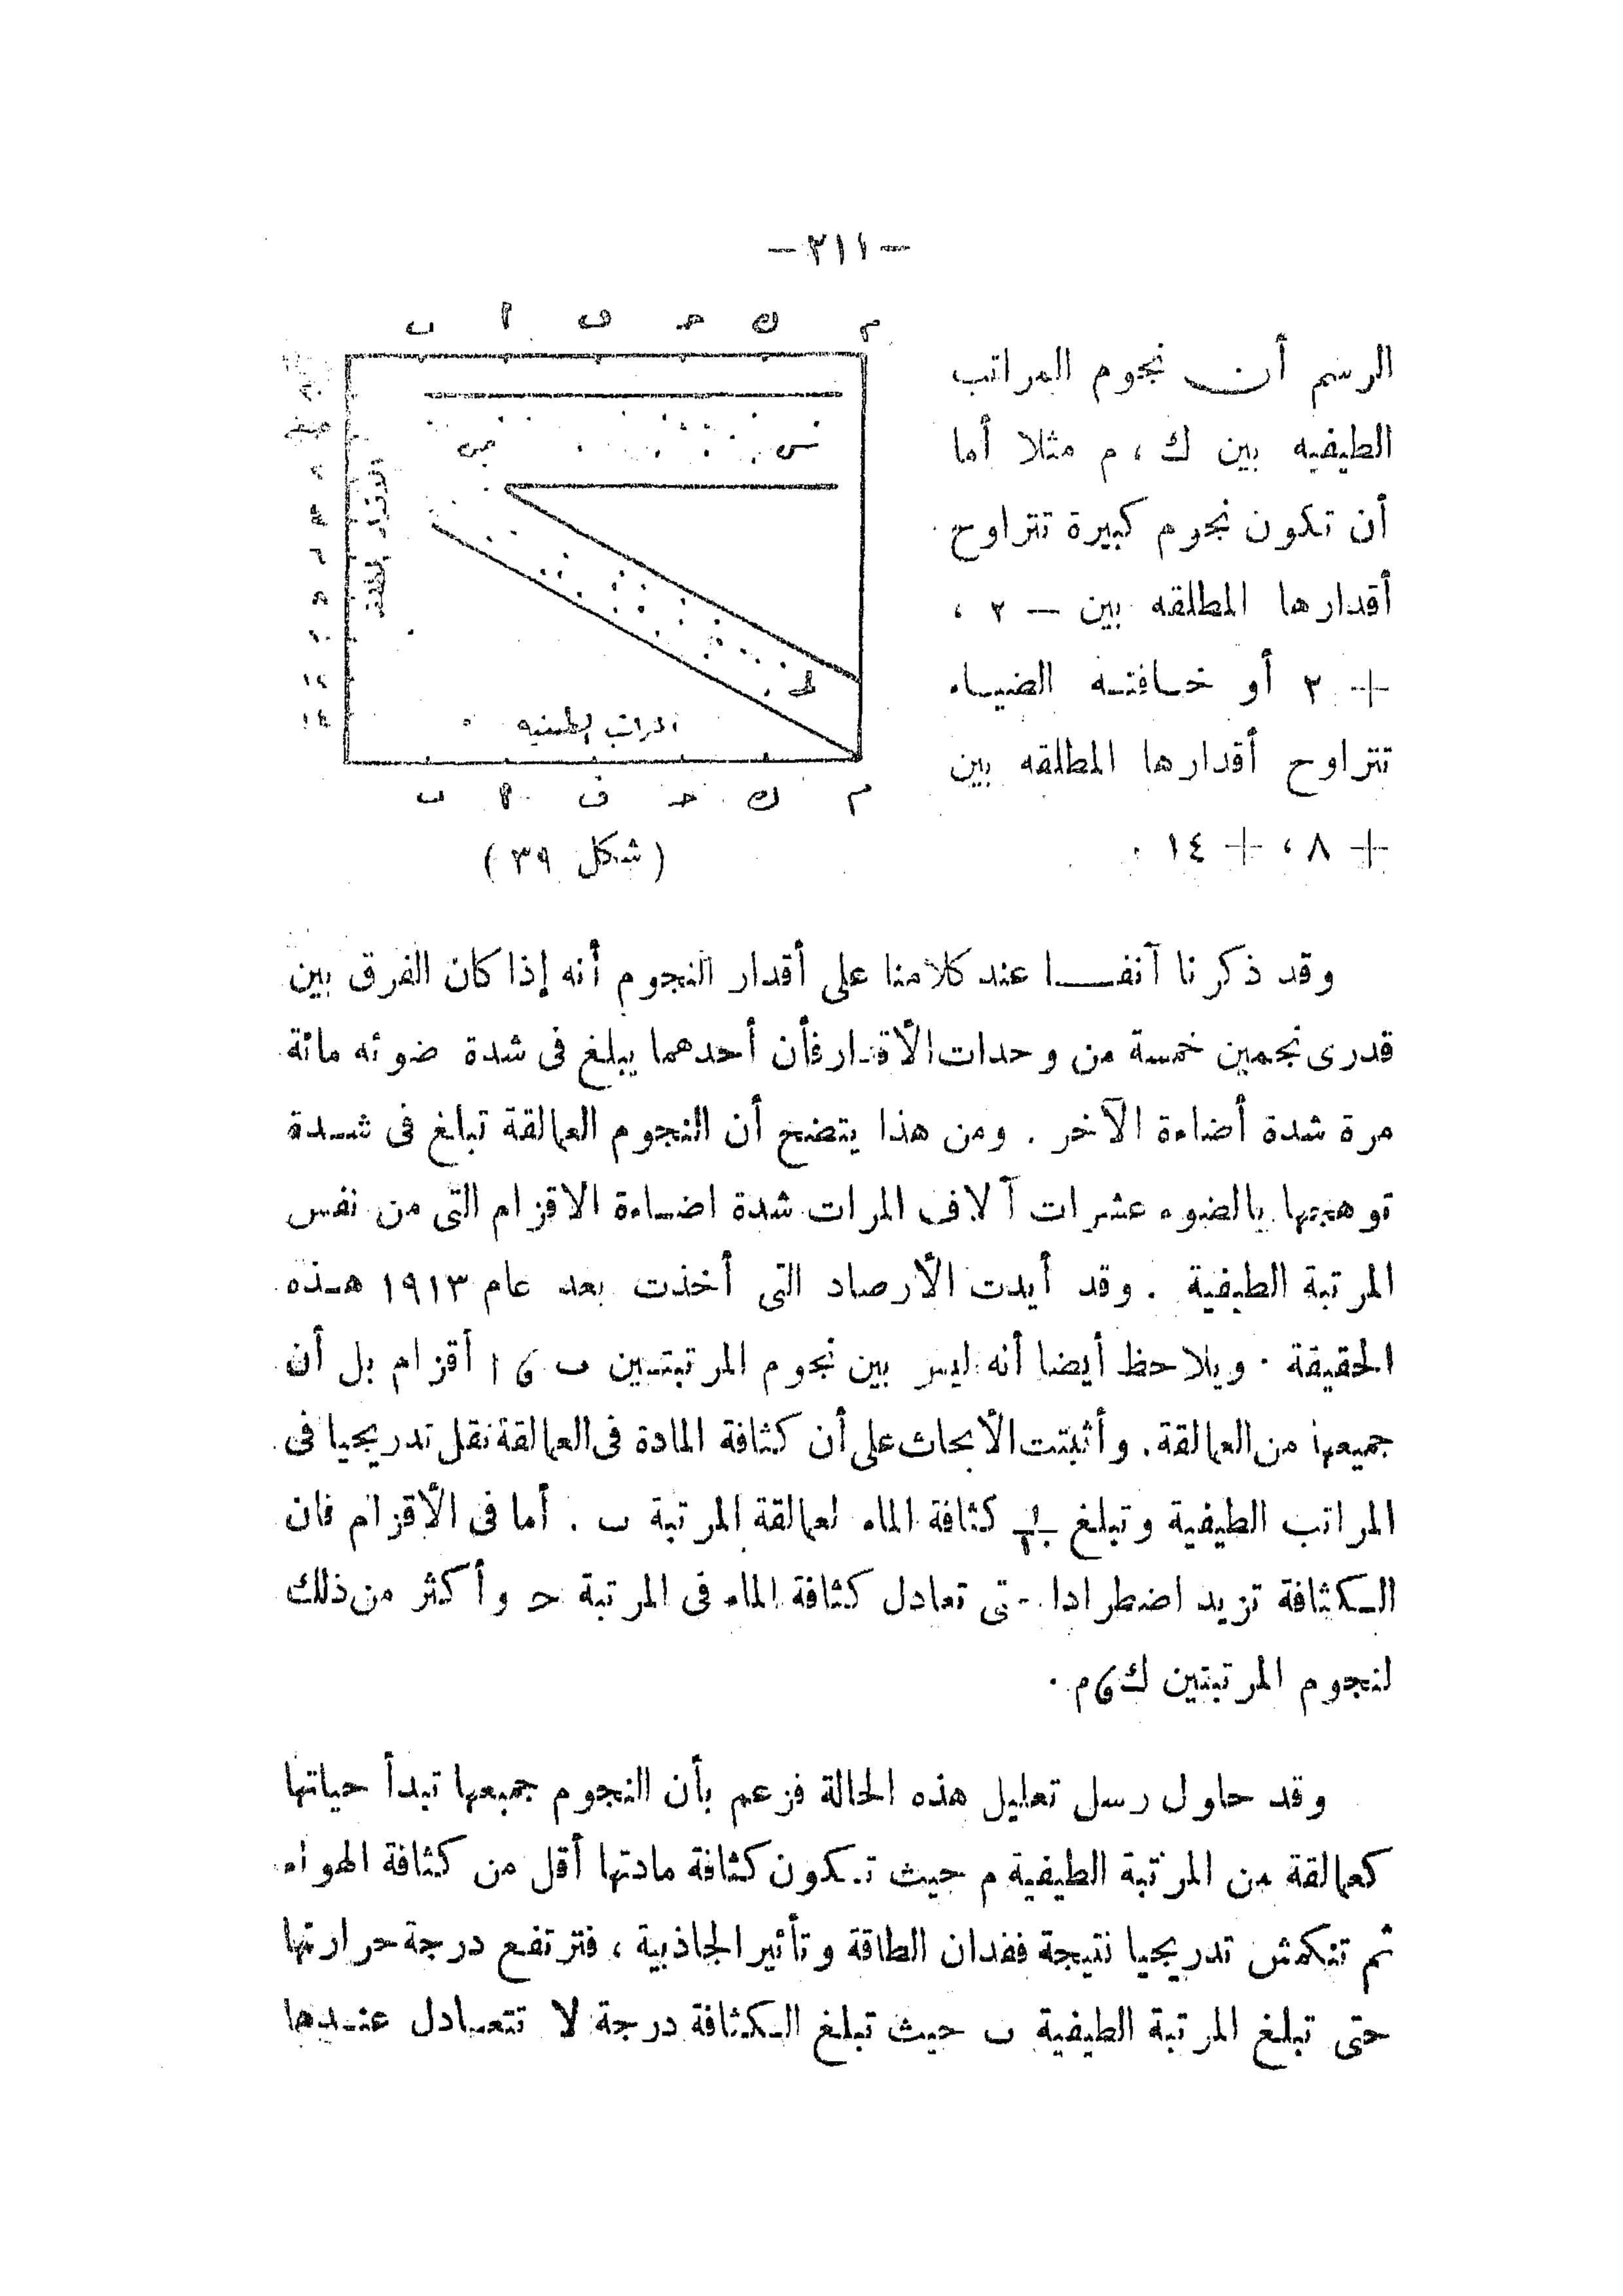 — ٢١١ —
ب ا ف ح ك م
الرسم أن نجوم المراتب
الطيفيه بين ك ، م مثلا أما
أن تكون نجوم كبيرة تتراوح
أقدارها المطلقه بين — ٢ ،
+ ٢ أو خافتـه الضيـاء
تتراوح أقدارها المطلقه بين
+ ٨ ، + ١٤ .
المراتب الطيفيه
ب ا ف ح ك م
( شكل ٣٩ )
وقد ذكرنا آنفـــا عند كلامنا على أقدار النجوم أنه إذا كان الفرق بين
قدرى نجمين خمسة من وحدات الأقدار فأن أحدهما يبلغ فى شدة ضوئه مائة
مرة شدة أضاءة الآخر . ومن هذا يتضح أن النجوم العمالقة تبلغ فى شـدة
توهجها بالضوء عشرات آلاف المرات شدة اضـاءة الاقزام التى من نفس
المرتبة الطيفية . وقد أيدت الأرصاد التى أخذت بعد عام ١٩١٣ هـذه
الحقيقة . ويلاحظ أيضا أنه ليس بين نجوم المرتبتـين ب ، ا أقزام بل أن
جميعها من العمالقة . وأثبتت الأبحاث على أن كثافة المادة فى العمالقة نقل تدريجيا فى
المراتب الطيفية وتبلغ كثافة الماء لعمالقة المرتبة ب . أما فى الأقزام فان
الـكثافة تزيد اضطرادا حتى تعادل كثافة الماء فى المرتبة ح وأكثر من ذلك
لنجوم المرتبتين ك ، م .
وقد حاول رسل تعليل هذه الحالة فزعم بأن النجوم جميعها تبدأ حياتها
كعمالقة من المرتبة الطيفية م حيث تـكون كثافة مادتها أقل من كثافة الهواء
ثم تنكمش تدريجيا نتيجة فقدان الطاقة وتأثير الجاذبية ، فترتفع درجة حرارتها
حتى تبلغ المرتبة الطيفية ب حيث تبلغ الـكثافة درجة لا تتعـادل عنـدها